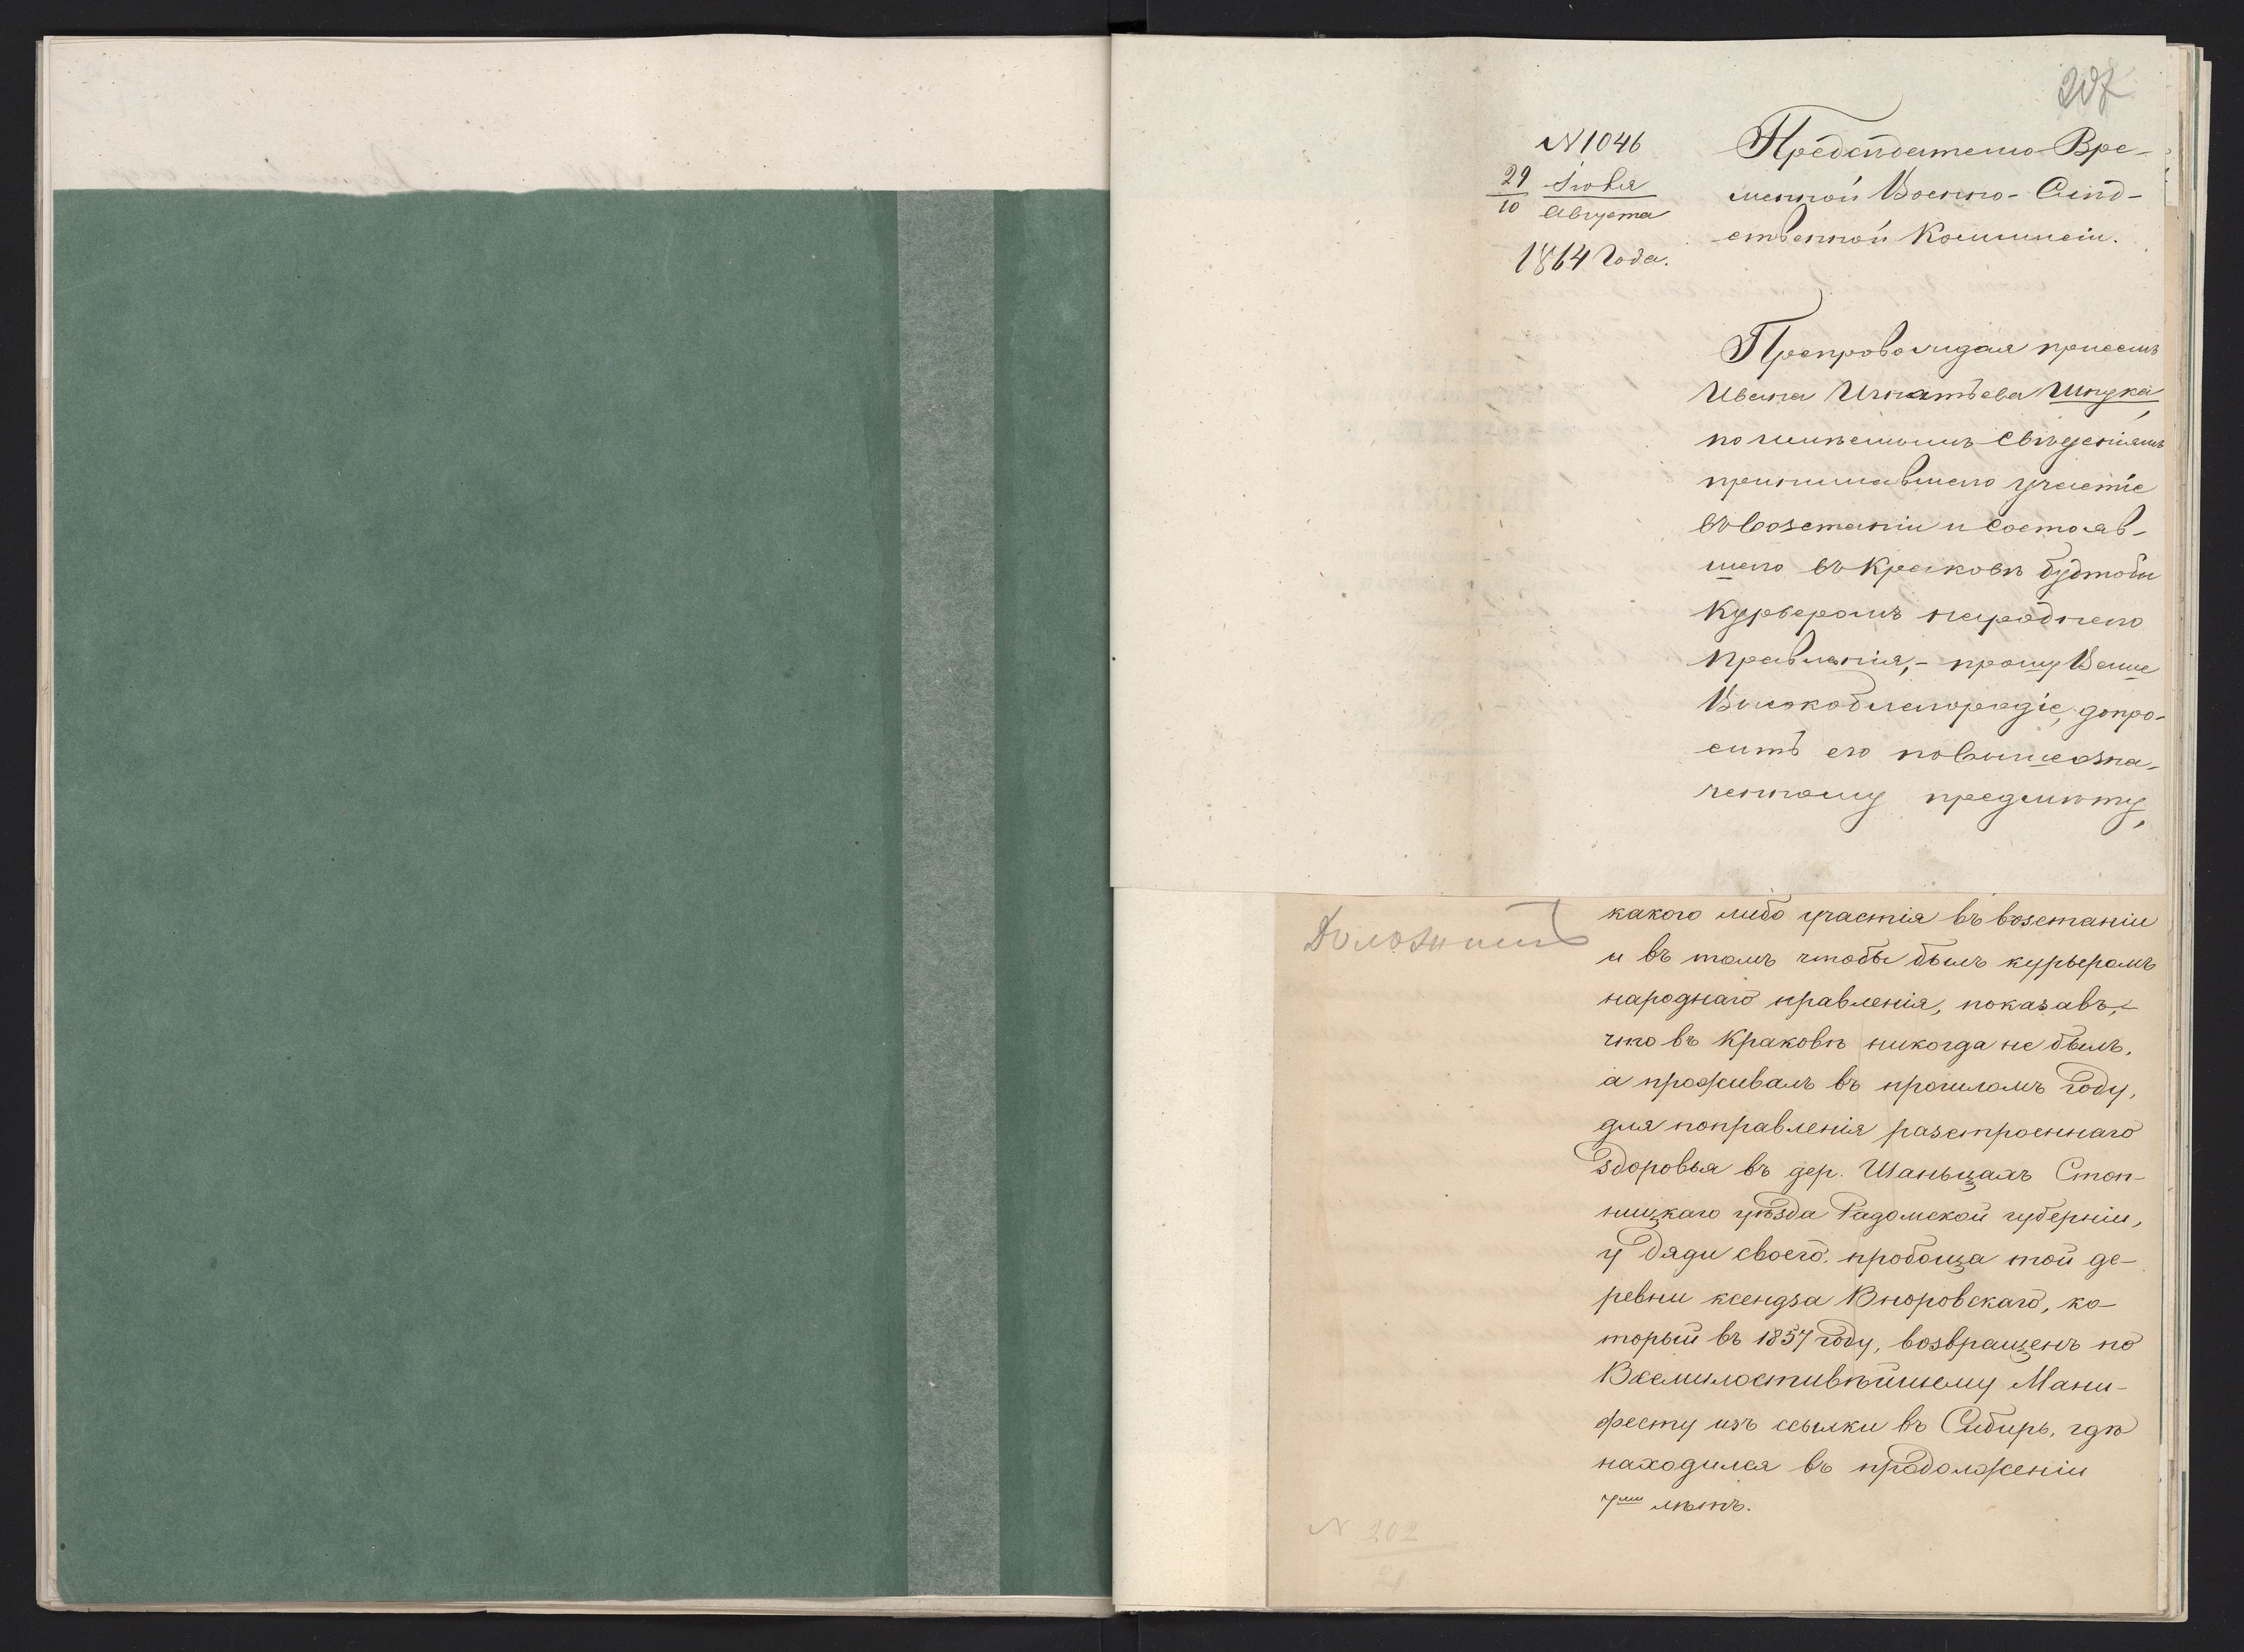 207
N 1046
29 Іюля
10 Августа
1864 Года.
Предсѣдателю Вре-
менной Военно-Слѣд-
ственной Коммисіи.
Препровождая присемъ
Ивана Игнатьева Шпука,
по имѣемымъ свѣденіямъ
принимавшаго участіе
въ возстаніи и состояв-
шаго въ Краковѣ будтобы
Курьеромъ народнаго
правленія,- прошу Ваше
Высокоблагородіе, допро-
сить его повышеозна-
ченному предмѣту,
Доложить
какого либо участія въ возстаніи
и въ томъ чтобы былъ курьеромъ
народнаго правленія, показавъ,-
что въ Краковѣ никогда не былъ,
а проживалъ въ прошломъ году,
для поправленія разстроеннаго
здоровья въ дер. Шаньцахъ Стоп-
ницкаго уѣзда Радомской губерніи,
у дяди своего, пробоща той де-
ревни ксендза Вноровскаго, ко-
торый въ 1857 году, возвращенъ по
Всемилостивѣйшему Мани-
фесту изъ ссылки въ Сибирь, гдѣ
находился въ продолженіи
7ми лѣтъ.
N 202
21